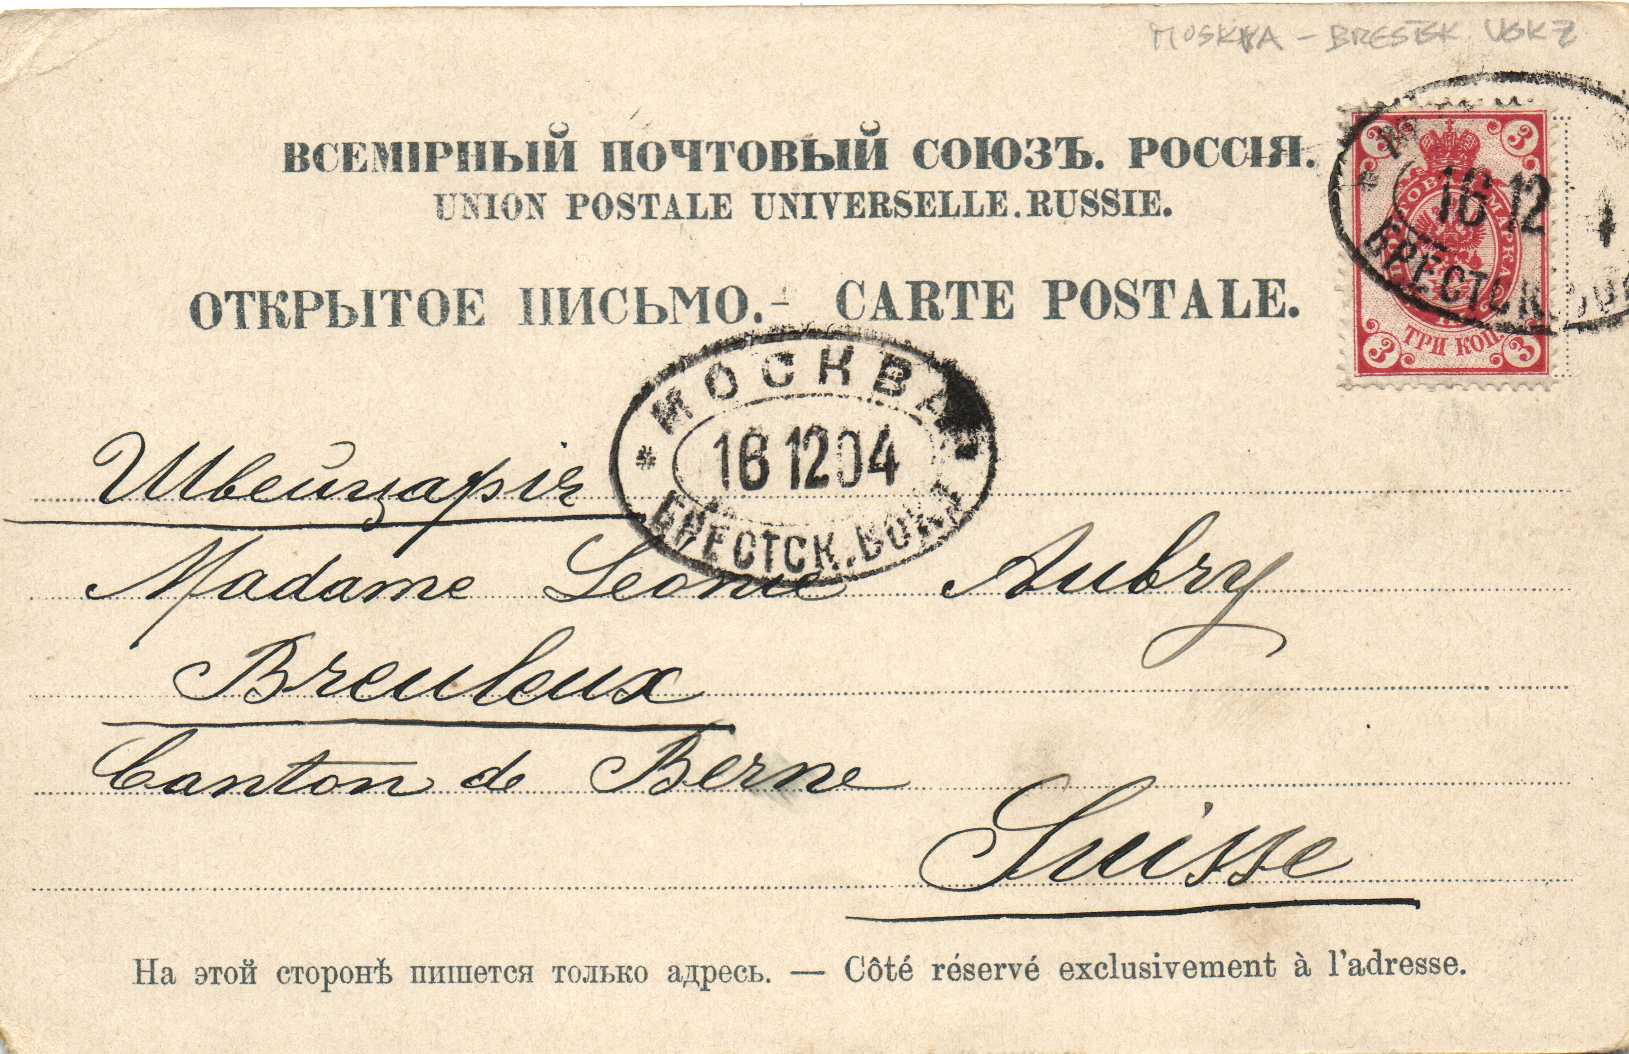 MOSKVA - BRESTSK VOKZ
ВСЕМІРНЫЙ ПОЧТОВЫЙ СОЮЗЪ. РОССІЯ.
UNION POSTALE UNIVERSELLE. RUSSIE.
ОТКРЫТОЕ ПИСЬМО. - CARTE POSTALE.
3 3
ПОЧТОВАЯ МАРКА
16 12
БРЕСТСК.
ТРИ КОП.
3 3
МОСКВА
16 12 04
БРЕСТСК. ВОКЗ
Швейцарія
Madame Leonie Aubry
Breuleux
Canton de Berne
Suisse
На этой сторонѣ пишется только адресь. — Côté réservé exclusivement à l'adresse.